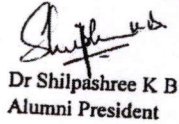 Dr Shilpashree K B
Alumni President